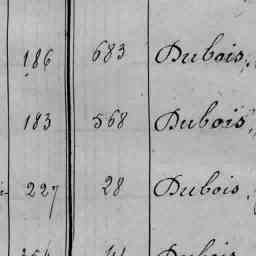 186 683 Dubois,
183 568 Dubois,
227 28 Dubois,
Dubois